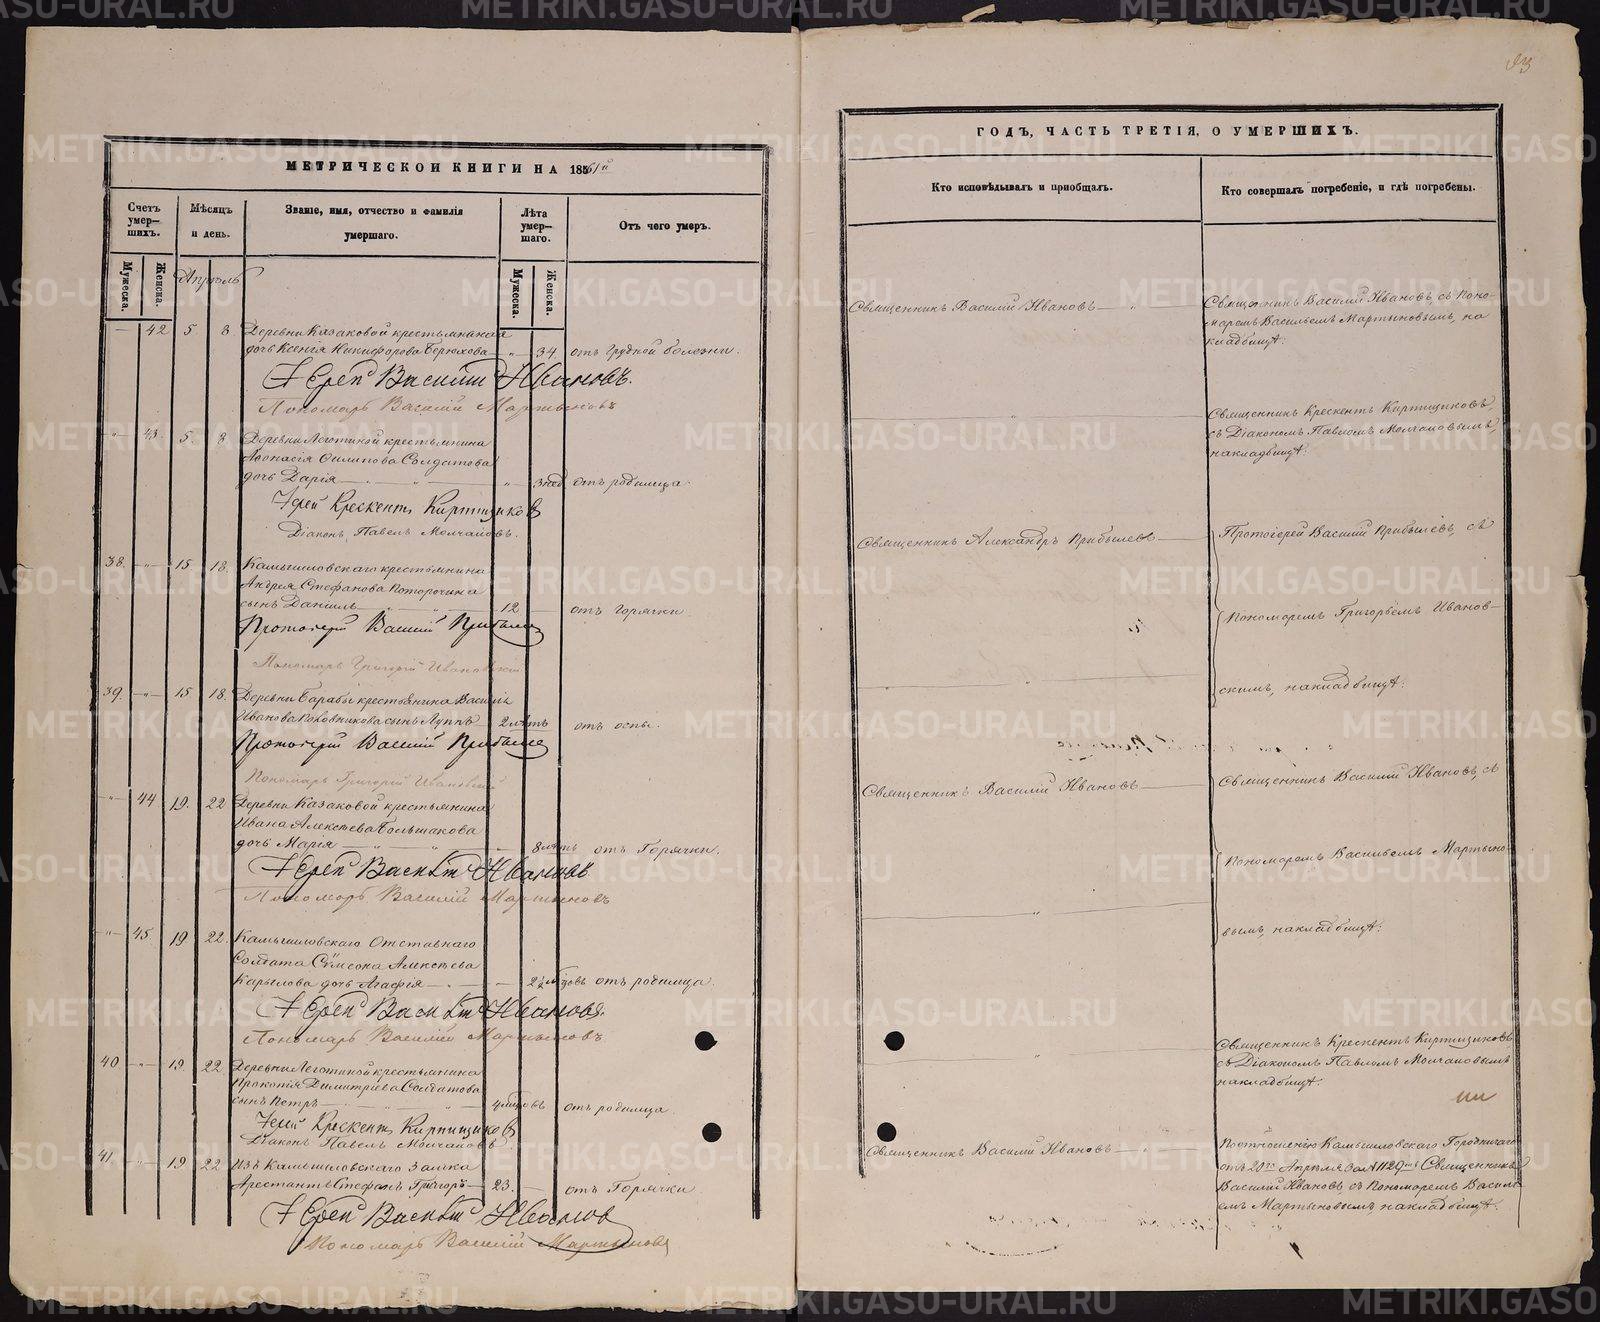 93
МЕТРИЧЕСКОЙ КНИГИ НА 1861й
ГОДЪ, ЧАСТЬ ТРЕТІЯ, О УМЕРШИХЪ.
Счетъ умер—шихъ.
Мужеска.
Женска.
Мѣсяцъ и день.
Званіе, имя, отчество и фамилія умершаго.
Лѣта умер—шаго.
Мужеска.
Женска.
Отъ чего умеръ.
Кто исповѣдывалъ и пріобщалъ.
Кто совершалъ погребеніе, и гдѣ погребены.
Апрѣль
— 42 5 8. Деревни Казаковой крестьянская
дочь Ксенія Никифорова Берюхова — „ — 34 отъ грудной болезни.
Іерей Василій Ивановъ.
Пономарь Василій Мартыновъ
Священникъ Василій Ивановъ — „ —
Священникъ Василій Ивановъ, съ Поно-
маремъ Васильемъ Мартыновымъ, на
кладбищѣ.
„ 43. 5. 8. Деревни Леготиной крестьянина
Афонасія Филипова Солдатова
дочь Дарія — „ — „ — 3 нед отъ родимца.
Іерей Крескентъ Киртищиковъ
Діаконъ Павелъ Молчановъ.
— „ —
Священникъ Крескентъ Киртищиковъ,
съ Діакономъ Павломъ Молчановымъ,
на кладбищѣ.
38. „ 15 18. Камышловскаго крестьянина
Андрея Стефанова Поторочина
сынъ Даніилъ — „ — 12 — отъ горячки
Протоіерей Василій Прибылев
Пономарь Григорій Ивановскій
Священникъ Александръ Прибылевъ —
Протоіерей Василій Прибылевъ, съ
Пономаремъ Григорьемъ Иванов-
скимъ, на кладбищѣ.
39. „ 15 18. Деревни Барабы крестьянина Василія
Иванова Коновникова сынъ Луппъ — 2 лѣтъ отъ оспы.
Протоіерей Василій Прибылев
Пономарь Григорій Ивановскій
— „ —
„ 44 19. 22 Деревни Казаковой крестьянина
Ивана Алексѣева Большакова
дочь Марія — „ — 8 лѣтъ отъ горячки.
Іерей Василій Ивановъ
Пономарь Василій Мартыновъ
Священникъ Василій Ивановъ —
Священникъ Василій Ивановъ, съ
Пономаремъ Васильемъ Мартыно-
вымъ, на кладбищѣ.
„ 45. 19 22. Камышловскаго Отставнаго
Солдата Сѵмеона Алексѣева
Карылова дочь Агафія — „ — 2½ мѣсяцовъ отъ родимца.
Іерей Василій Ивановъ.
Пономарь Василій Мартыновъ
— „ —
40 „ 19 22 Деревни Леготиной крестьянина
Прокопія Димитріева Солдатова
сынъ Петръ — „ — 4 мѣсяцовъ отъ родимца.
Іерей Крескентъ Киртищиковъ
Діаконъ Павелъ Молчановъ
— „ —
Священникъ Крескентъ Киртищиковъ,
съ Діакономъ Павломъ Молчановымъ
на кладбищѣ.
41. „ 19 22 Изъ Камышловскаго Замка
Арестантъ Стефанъ Григорь— 23. — отъ горячки
Іерей Василій Ивановъ
Пономарь Василій Мартыновъ
Священникъ Василій Ивановъ — „ —
По отношенію Камышловскаго Городничаго
отъ 20го Апрѣля за № 1129мъ Священникъ
Василій Ивановъ, съ Пономаремъ Василь-
емъ Мартыновымъ, на кладбищѣ.
METRIKI.GASO-URAL.RU